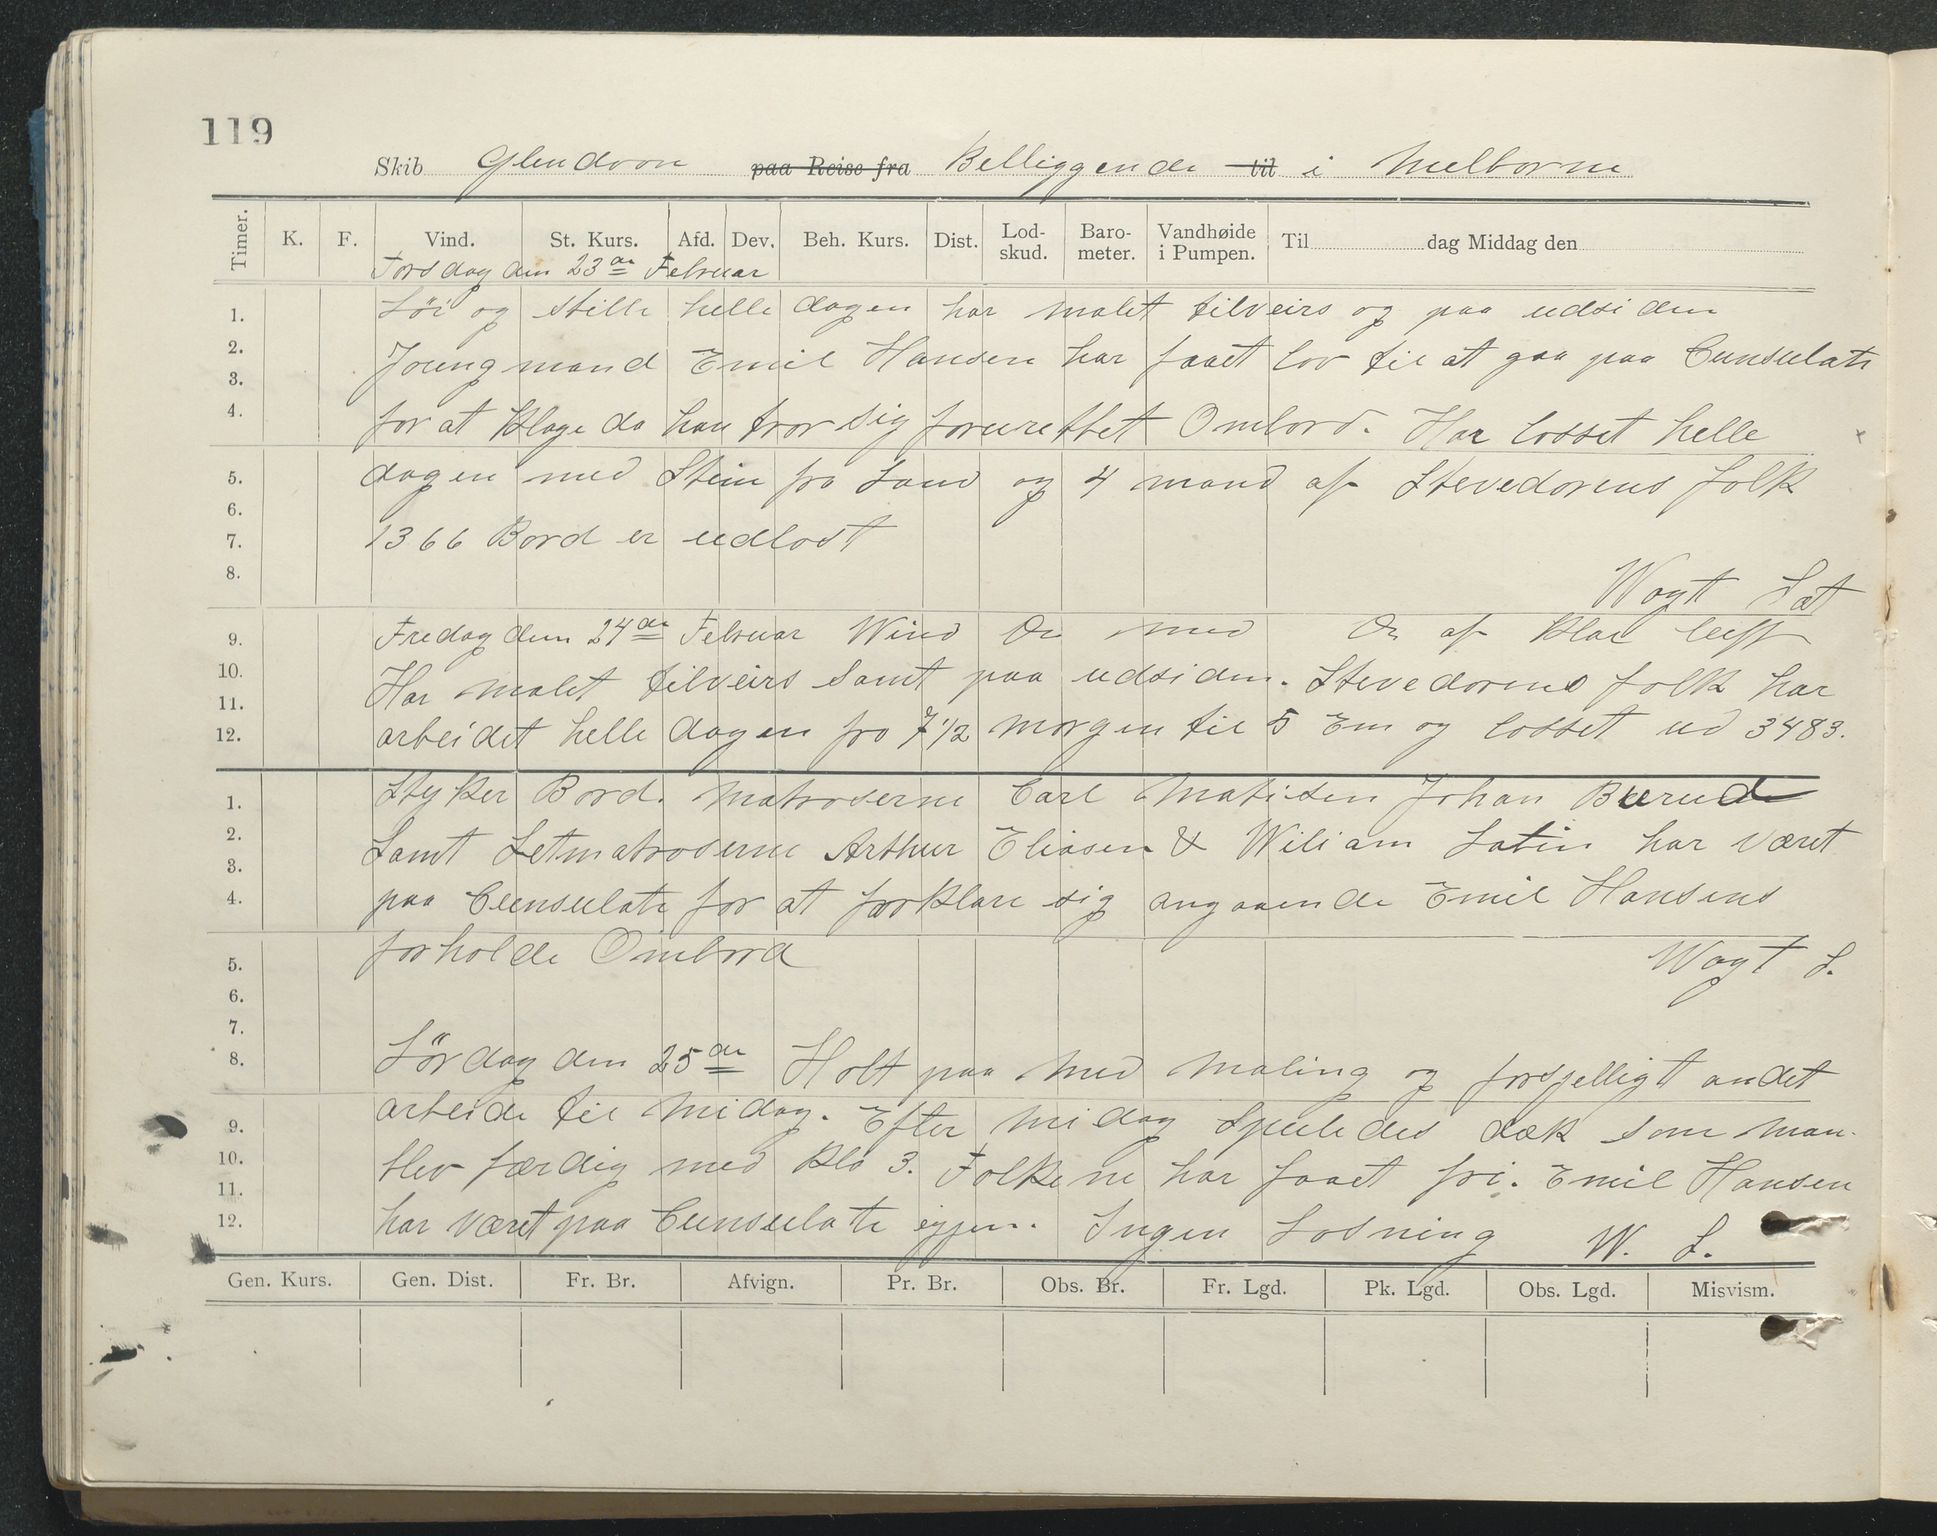 119
Skib Glendoon paa Reise fra Belliggende til i Melborne
Timer. K. F. Vind. St. Kurs. Afd. Dev. Beh. Kurs. Dist. Lod-skud. Baro-meter. Vandhøide i Pumpen. Til dag Middag den
Torsdag den 23de Februar
1. Löi og stille helle dagen har malet tilveirs og paa udsiden
2. Joungmand Emil Hansen har faaet lov til at gaa paa Cunsulate
3.
4. for at klage da han tror sig forurettet Ombord. Har losset helle
5. dagen med Stein fra Land og 4 mand af Stevedorens folk
6.
7. 1366 Bord er udlost
8.
Wagt Læt
9. Fredag den 24de Februar Wind On med On af klar luft
10. Har malet tilveirs samt paa udsiden. Stevedorens folk har
11.
12. arbeidet helle dagen fra 7 1/2 morgen til 5 Em og losset ud 3483.
1. Styker Bord. Matroserne Carl Matisen Johan Buerud
2. Samt Letmatroserne Arthur Eliasen & Wiliam Latin har været
3.
4. paa Cunsulate for at forklare sig angaaende Emil Hansens
5. forholde Ombord Wagt L.
6.
7.
8. Lördag den 25de Holt paa med maling og forsjelligt andet
9. arbeide til Midag. Efter Midag Spuledes dæk som man
10. blev færdig med Klo 3. Folkene har faaet fri. Emil Hansen
11.
12. har været paa Cunsulate igjen. Ingen Losning W. L.
Gen. Kurs. Gen. Dist. Fr. Br. Afvign. Pr. Br. Obs. Br. Fr. Lgd. Pk. Lgd. Obs. Lgd. Misvism.